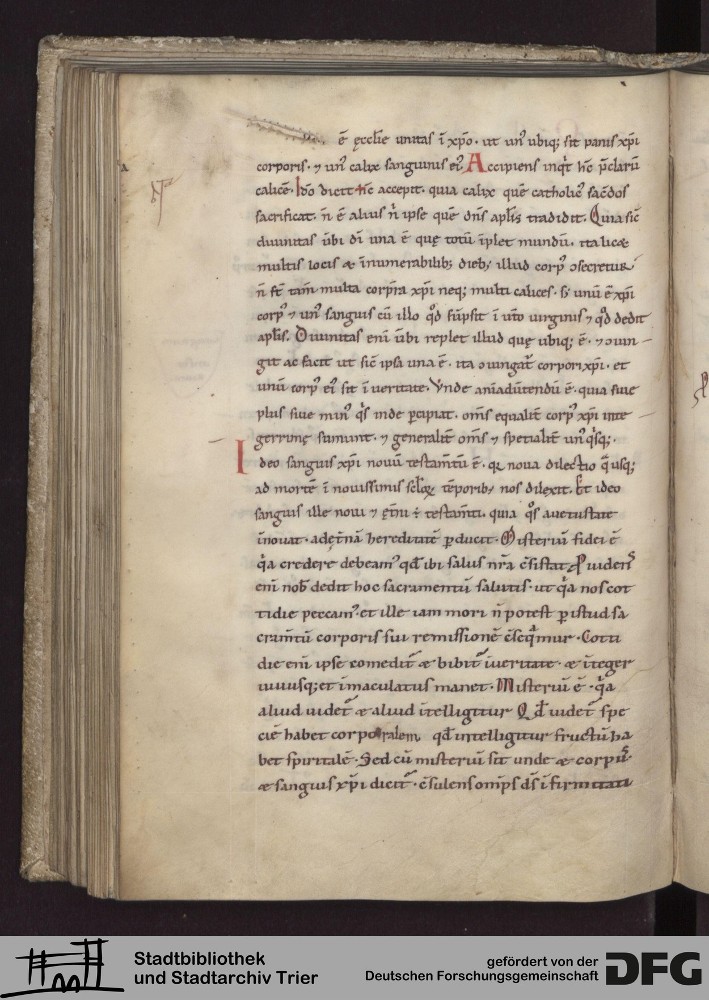 ē ęccłie unitas ī xp̄o · ut un᷒ ubiq; sit panis xp̄i
corporis · ⁊ un᷒ calix sanguinis ei᷒. Accipiens inqͥt hc̄ p̄clarū
calicē. Ido dicit hc̄ accepit · quia calix quē catholic᷒ sac̄dos
sacrificat · n̄ ē alius nͥ ipse quē dn̄s apłis tradidit. Quia sic̄
diuinitas ūbi dī una ē quę totū īplet mundū · ita licæ
multis locis æ īnumerabilib; dieb; illud corp᷒ ɔsecretur
n̄ st̄ tam̄ multa corp̄ra xp̄i neq; multi calices · s; unū ē xp̄i
corp᷒ ⁊ un᷒ sanguis cū illo qͦd sūpsit ī ut̄o uirginis ⁊ qͦd dedit
apłis. Diuinitas eni᷒ ūbi replet illud quę ubiq; ē · ⁊ ɔiun-
git ac facit ut sic̄ ipsa una ē · ita ɔiungat᷑ corpori xp̄i · et
unū corp᷒ ei᷒ sit ī ueritate. Unde aniaduertendū ē · quia siue
plus siue min᷒ qͥs inde ꝑcipiat · om̄s equalit̄ corp᷒ xp̄i inte-
gerrimę sumunt · ⁊ generalit̄ om̄s ⁊ spetialit̄ un᷒qͥsq;.
Ideo sanguis xp̄i nouū testam̄tū ē · qꝛ noua dilectio qͣ usq;
ad mortē ī nouissimis sc̄loꝝ tēporib; nos dilexit. Et ideo
sanguis ille noui ⁊ et̄ni ÷ testam̄ti · quia qͦs a uetustate
īnouat · ad et̄nā hereditatē ꝑducit. Misteriū fidei ē
qͣ credere debeam᷒ qd̄ ibi salus nr̄a c̄sistat. Prouidens
eni᷒ nob̄ dedit hoc sacramentū salutis · ut qͣ nos cot
tidie peccam᷒ · et ille iam mori n̄ potest ꝑ istud sa
cram̄tū corporis sui remissionē c̄seqͣmur · Cotti
die eni᷒ ipse comedit᷑ æ bibit᷑ ī ueritate · æ īteger
uiuusq; et īmaculatus manet · Misteriū ē · qͣ
aliud uidet᷑ æ aliud ītelligitur Qd̄ uidet᷑ spe
ciē habet corporalem qd̄ intelligitur fructū ha
bet spiritalē · Sed cū misteriū sit unde æ corp᷒
æ sanguis xp̄i dicit᷑ · c̄sulens omp̄s ds̄ īfirmitati
Stadtbibliothek
und Stadtarchiv Trier
gefördert von der
Deutschen Forschungsgemeinschaft
DFG